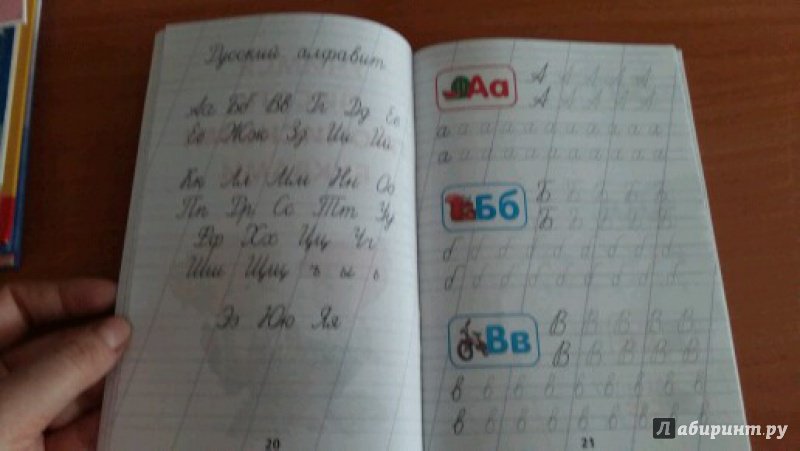 Русский алфавит
Аа Бб Вв Гг Дд Ее
Ёё Жж Зз Ии Йй
Кк Лл Мм Нн Оо
Пп Рр Сс Тт Уу
Фф Хх Цц Чч
Шш Щщ ъ ы ь
Ээ Юю Яя
20
Аа
А А А А А
А А А А А
а а а а а а а а а а а
а а а а а а а а а а а
Бб
Б Б Б Б Б
Б Б Б Б Б
б б б б б б б б б
б б б б б б б б б
Вв
В В В В В
В В В В В
в в в в в в в в в
в в в в в в в в в
21
Лабиринт.ру